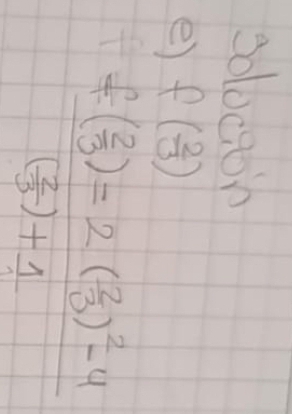 Solución
e) f (2/3)
f (2/3) = 2 (2/3)² - 4
(2/3) + 1